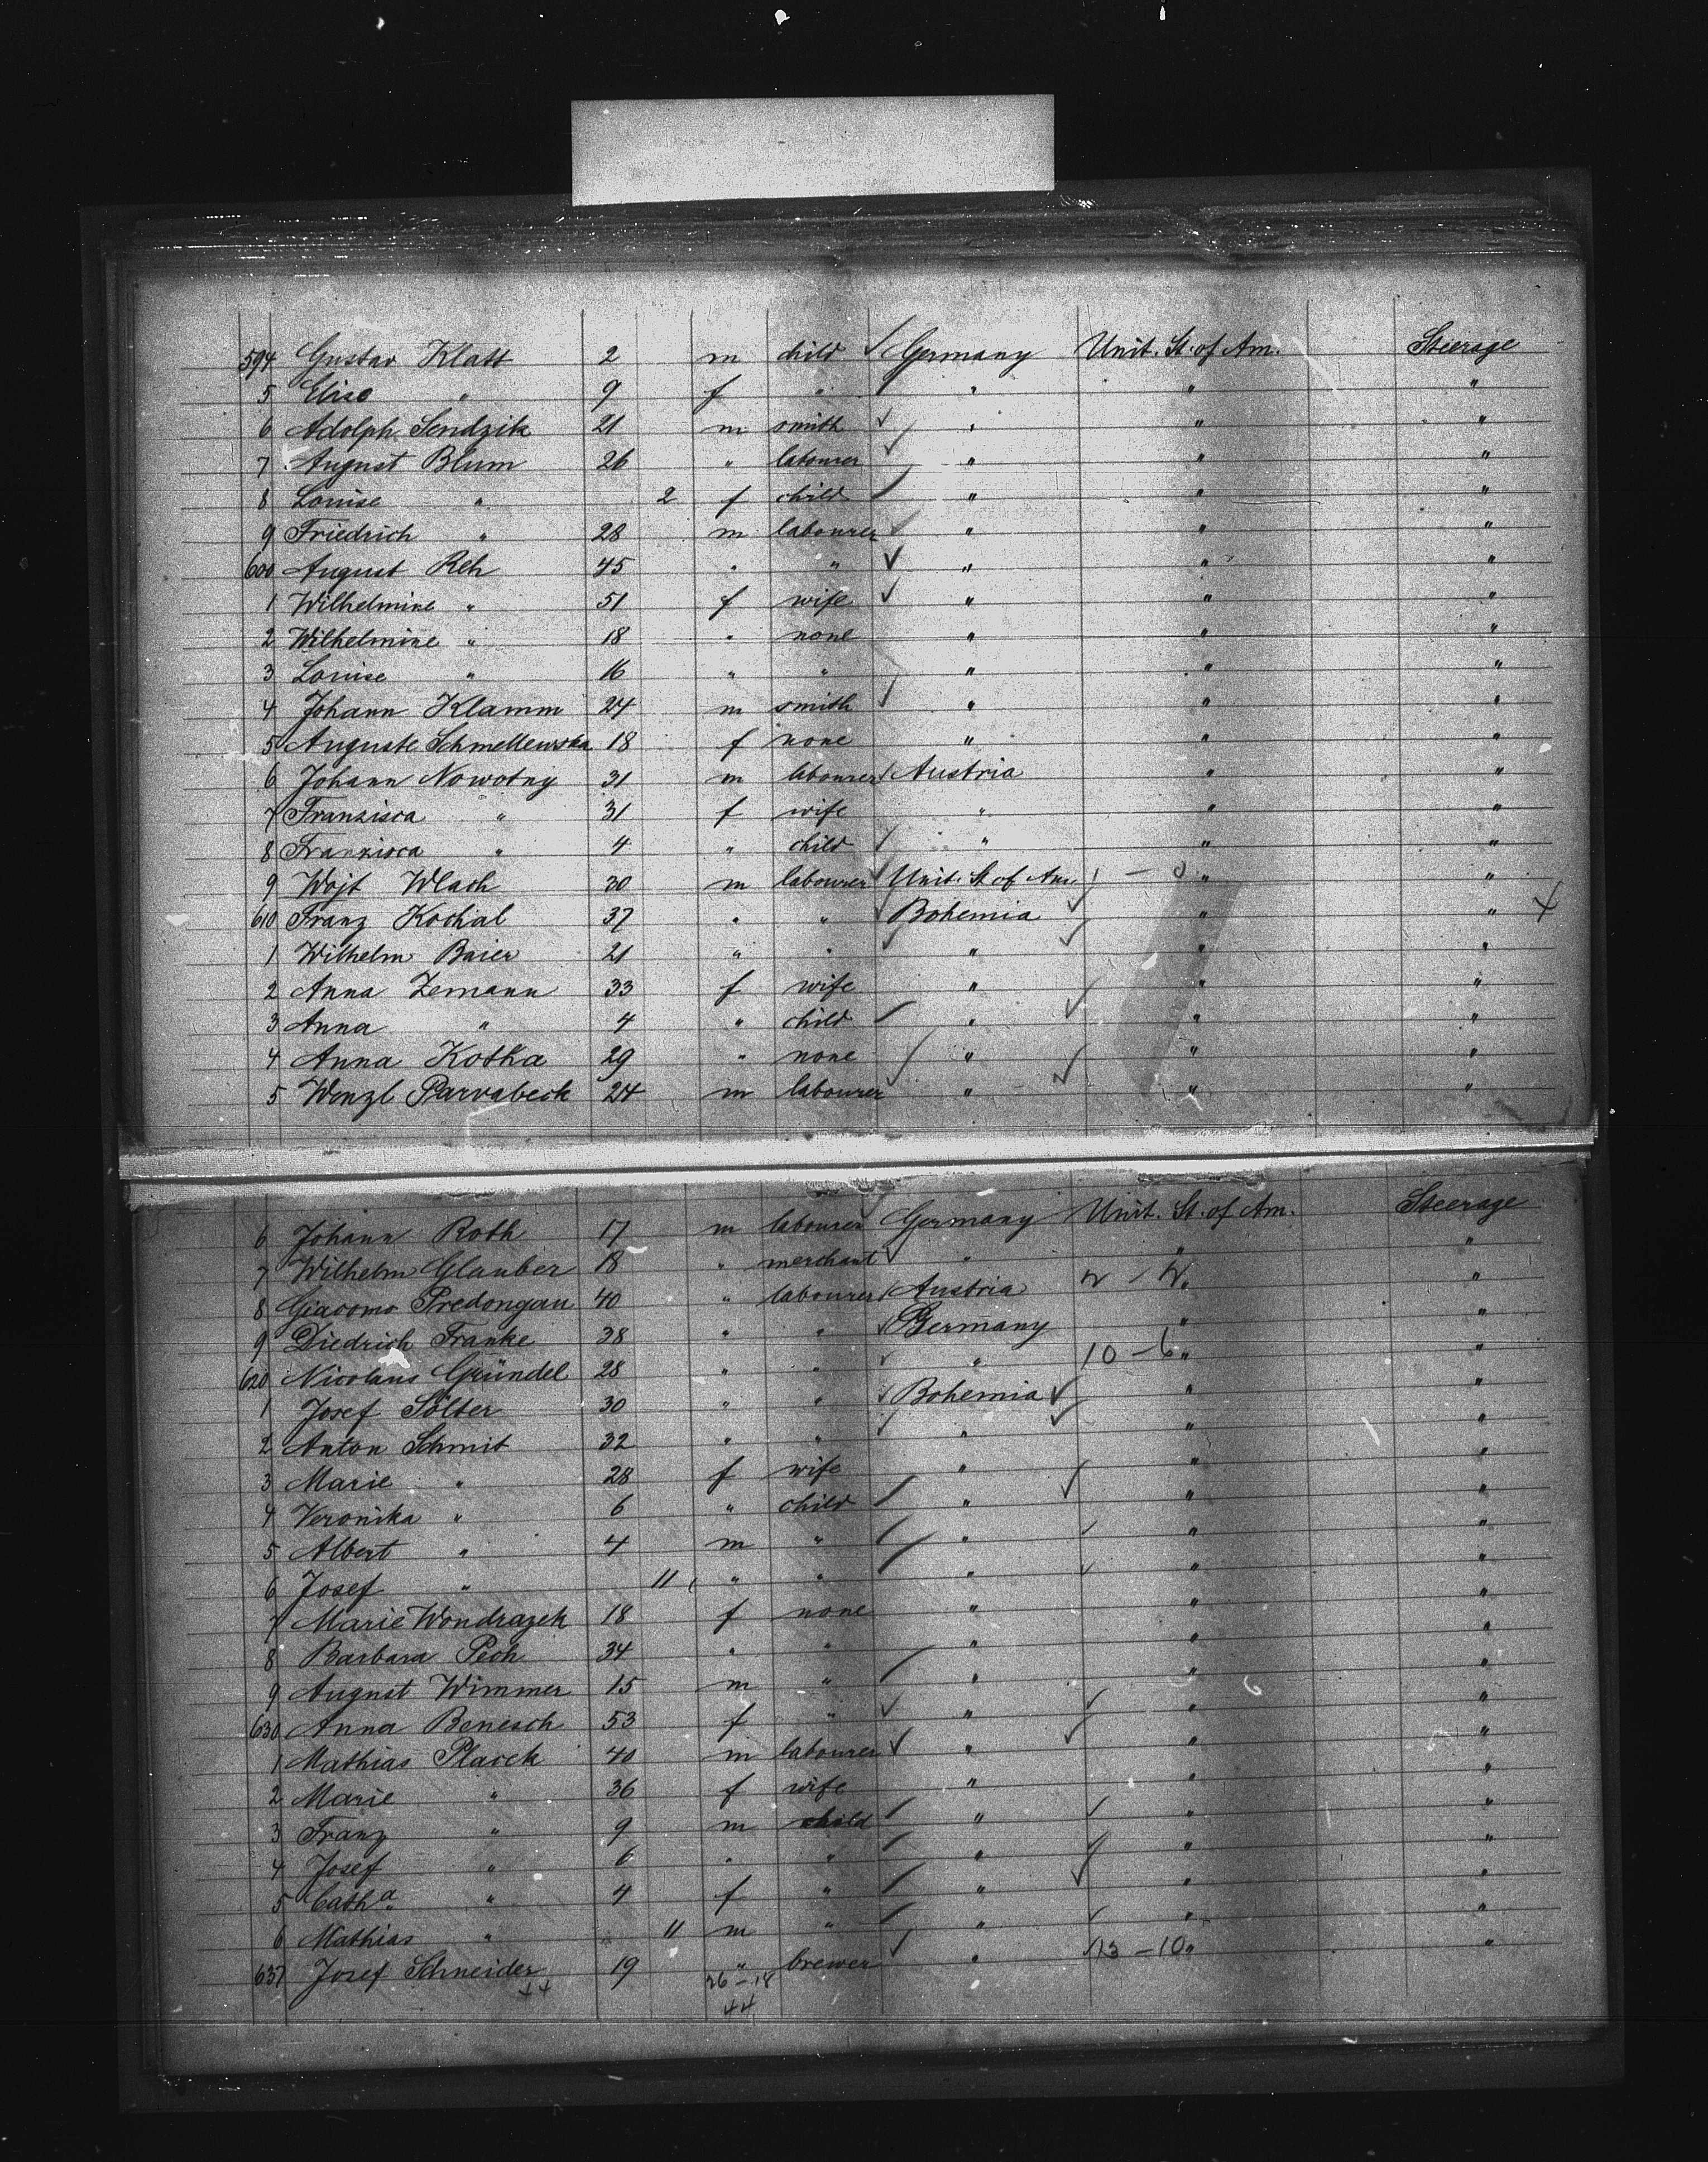 594 Gustav Klatt 2 m child Germany Unit. St. of Am. Steerage
5 Elise " 9 f " " " "
6 Adolph Sendzik 21 m smith " " "
7 August Blum 26 " labourer " " "
8 Louise " 2 f child " " "
9 Friedrich " 28 m labourer " " "
600 August Reh 45 " " " " "
1 Wilhelmine " 51 f wife " " "
2 Wilhelmine " 18 " none " " "
3 Louise " 16 " " " " "
4 Johann Klamm 24 m smith " " "
5 Auguste Schmellewska 18 f none " " "
6 Johann Nowotny 31 m labourer Austria " "
7 Franzisca " 31 f wife " " "
8 Franzisca " 4 " child " " "
9 Wojt Wlach 30 m labourer Unit. St. of Am. " "
610 Franz Kochal 37 " " Bohemia " "
1 Wilhelm Baier 21 " " " " "
2 Anna Zemann 33 f wife " " "
3 Anna " 4 " child " " "
4 Anna Kotka 29 " none " " "
5 Wenzl Parvabeck 24 m labourer " " "
6 Johann Roth 17 m labourer Germany Unit. St. of Am. Steerage
7 Wilhelm Glauber 18 " merchant " " "
8 Giacomo Predongau 40 " labourer Austria " "
9 Diedrich Franke 38 " " Germany " "
620 Nicolaus Gründel 28 " " " 10 - 6 " "
1 Josef Sölter 30 " " Bohemia " "
2 Anton Schmit 32 " " " " "
3 Marie " 28 f wife " " "
4 Veronika " 6 " child " " "
5 Albert " 4 m " " " "
6 Josef " 11 " " " " "
7 Marie Wondrazek 18 f none " " "
8 Barbara Pech 34 " " " " "
9 August Wimmer 15 m " " " "
630 Anna Benesch 53 f " " " "
1 Mathias Placek 40 m labourer " " "
2 Marie " 36 f wife " " "
3 Franz " 9 m child " " "
4 Josef " 6 " " " " "
5 Catha " 4 f " " " "
6 Mathias " 11 m " " " "
637 Josef Schneider 19 " brewer " 13 - 10 " "
26 - 18